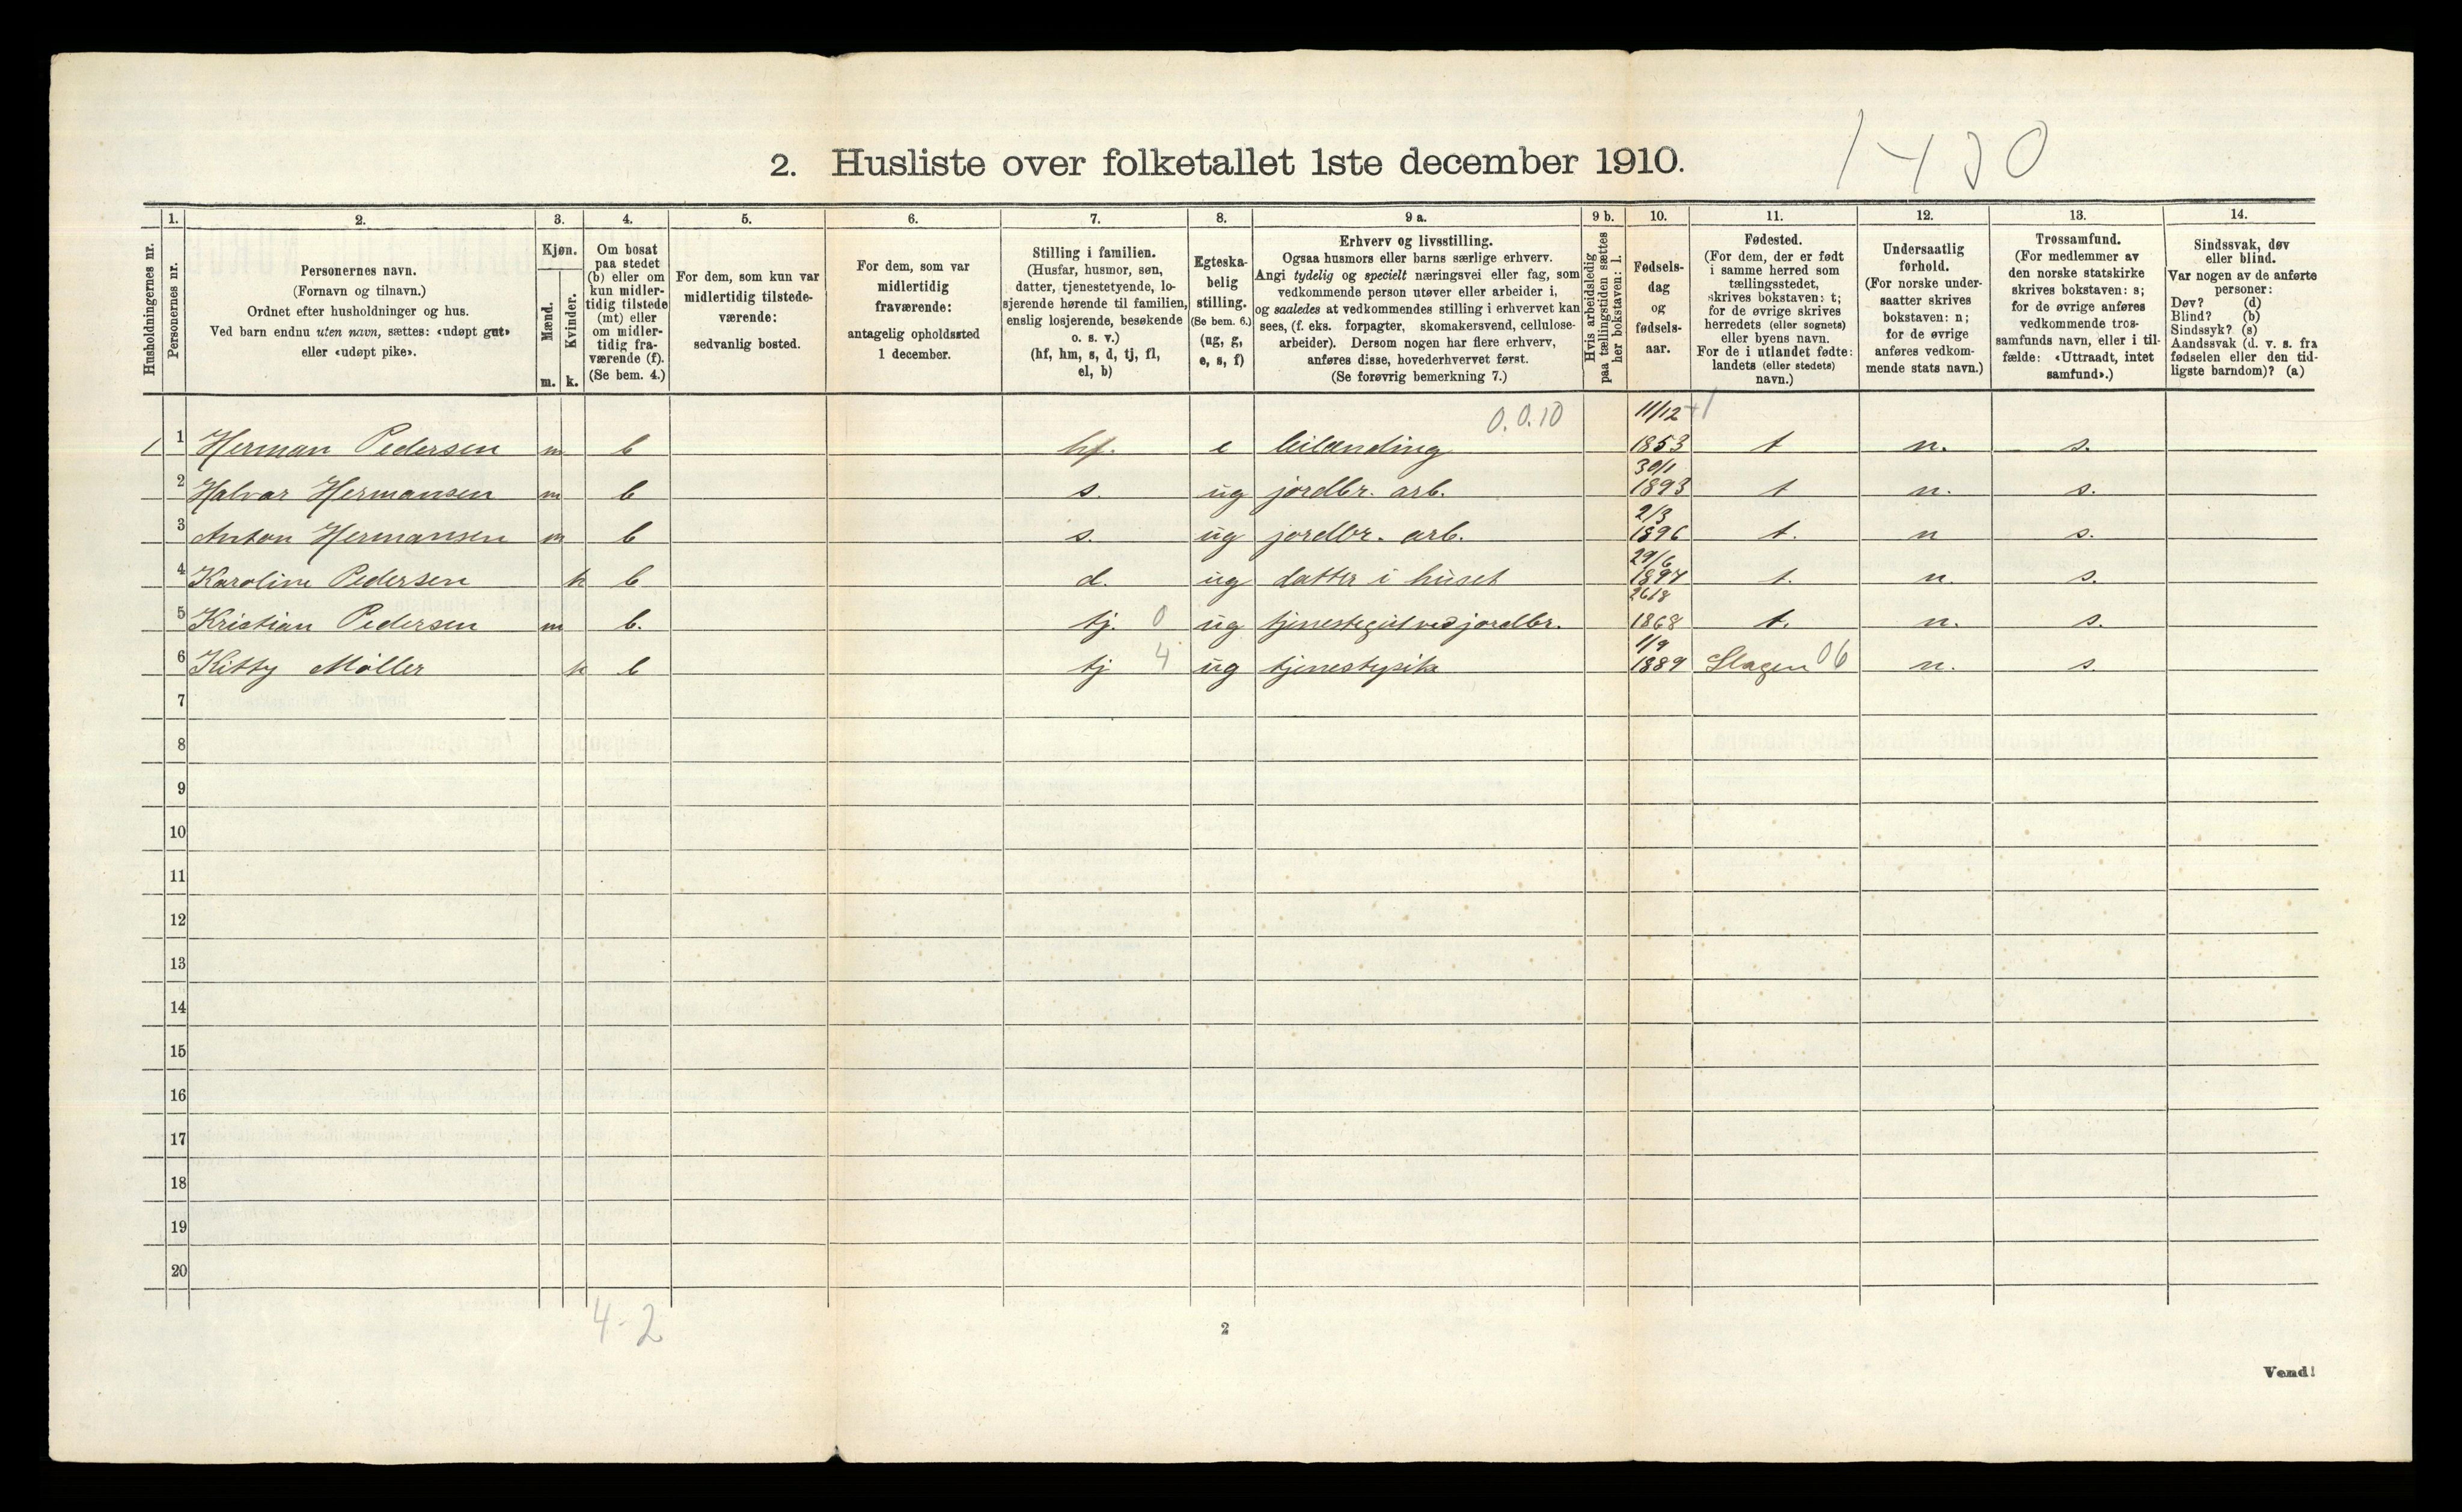 1430
2. Husliste over folketallet 1ste december 1910.
Husholdningernes nr.
1. Personernes nr.
2. Personernes navn. (Fornavn og tilnavn.) Ordnet efter husholdninger og hus. Ved barn endnu uten navn, sættes: «udøpt gut» eller «udøpt pike».
3. Kjøn. Mænd. Kvinder. m. k.
4. Om bosat paa stedet (b) eller om kun midlertidig tilstede (mt) eller om midlertidig fraværende (f). (Se bem. 4.)
5. For dem, som kun var midlertidig tilstedeværende: sedvanlig bosted.
6. For dem, som var midlertidig fraværende: antagelig opholdssted 1 december.
7. Stilling i familien. (Husfar, husmor, søn, datter, tjenestetyende, losjerende hørende til familien, enslig losjerende, besøkende o. s. v.) (hf, hm, s, d, tj, fl, el, b)
8. Egteskabelig stilling. (Se bem. 6.) (ug, g, e, s, f)
9 a. Erhverv og livsstilling. Ogsaa husmors eller barns særlige erhverv. Angi tydelig og specielt næringsvei eller fag, som vedkommende person utøver eller arbeider i, og saaledes at vedkommendes stilling i erhvervet kan sees, (f. eks. forpagter, skomakersvend, cellulosearbeider). Dersom nogen har flere erhverv, anføres disse, hovederhvervet først. (Se forøvrig bemerkning 7.)
9 b. Hvis arbeidsledig paa tællingstiden sættes her bokstaven: l.
10. Fødselsdag og fødselsaar.
11. Fødested. (For dem, der er født i samme herred som tællingsstedet, skrives bokstaven: t; for de øvrige skrives herredets (eller sognets) eller byens navn. For de i utlandet fødte: landets (eller stedets) navn.)
12. Undersaatlig forhold. (For norske undersaatter skrives bokstaven: n; for de øvrige anføres vedkommende stats navn.)
13. Trossamfund. (For medlemmer av den norske statskirke skrives bokstaven: s; for de øvrige anføres vedkommende trossamfunds navn, eller i tilfælde: «Uttraadt, intet samfund».)
14. Sindssvak, døv eller blind. Var nogen av de anførte personer: Døv? (d) Blind? (b) Sindssyk? (s) Aandssvak (d. v. s. fra fødselen eller den tidligste barndom)? (a)
1 1 Herman Pedersen m b hf. e leilænding 0.0.10 11/12 1853 t n. s.
2 Halvar Hermansen m b s. ug jordbr. arb. 30/1 1893 t n. s.
3 Anton Hermansen m b s. ug jordbr. arb. 2/3 1896 t. n s.
4 Karoline Pedersen k b d. ug datter i huset 29/6 1897 t. n. s.
5 Kristian Pedersen m b. tj. 0 ug tjenestegut ved jordbr. 26/8 1868 t. n. s.
6 Kitty Møller k b tj 4 ug tjenestepike 1/9 1889 Slagen 06 n. s
7
8
9
10
11
12
13
14
15
16
17
18
19
20
4-2
2
Vend!